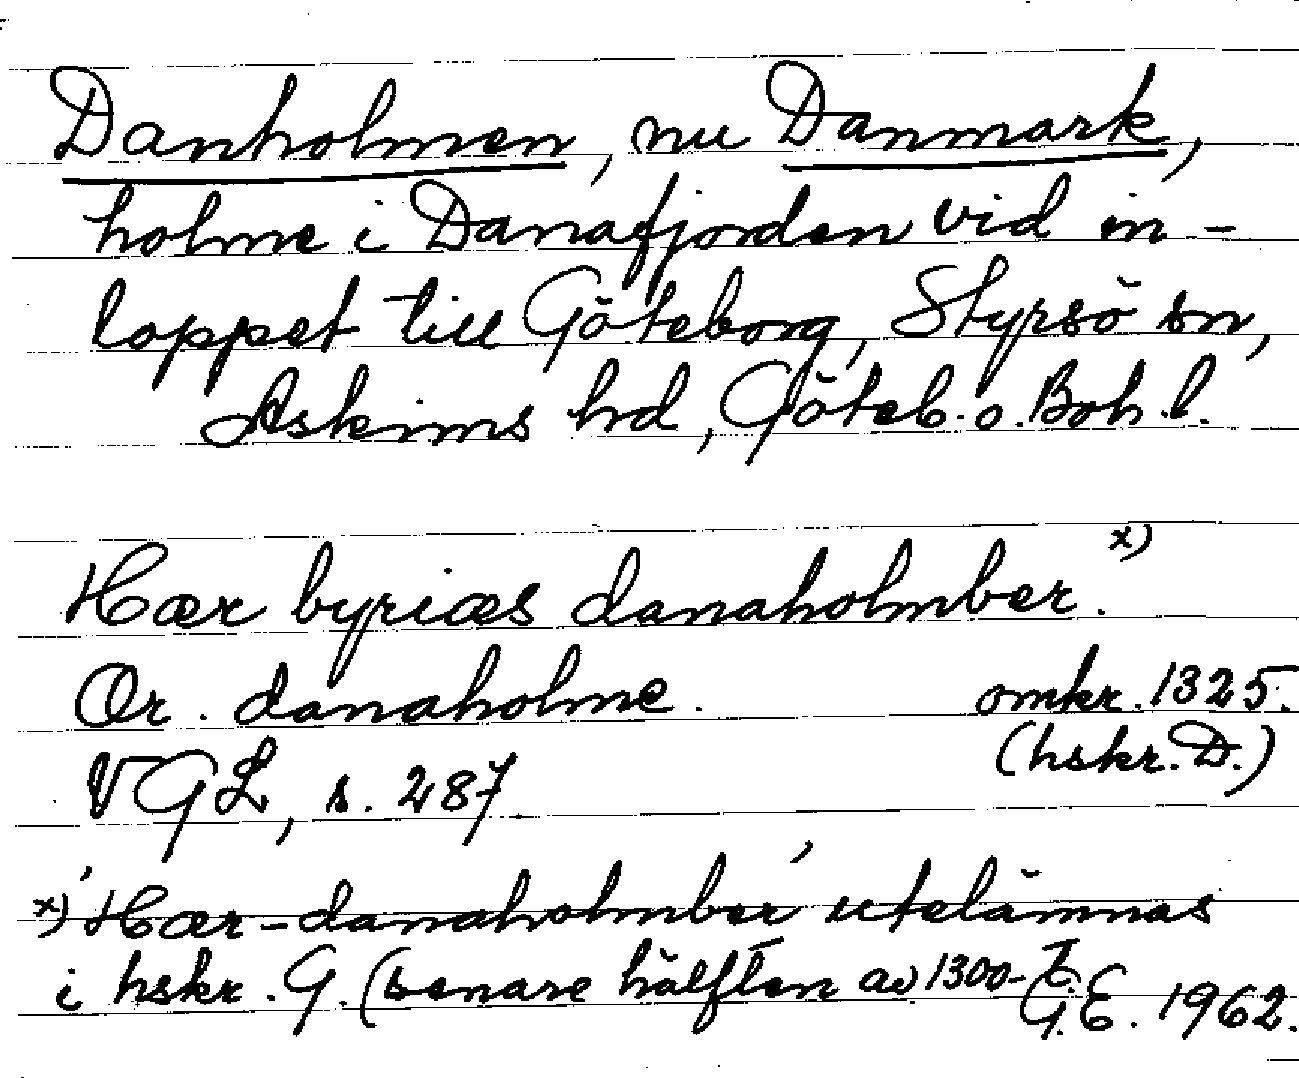 Danholmen, nu Danmark,
holme i Danafjorden vid in-
loppet till Göteborg, Styrsö sn,
Askims hd, Göteb. o. Boh. l.
Hær byriæs danaholmber. x)
Or. danaholme. omkr. 1325.
VGL, s. 287 (hskr. D.)
x) 'Hær-danaholmber' utelämnas
i hskr. G. (senare hälften av 1300-t.
G.E. 1962.